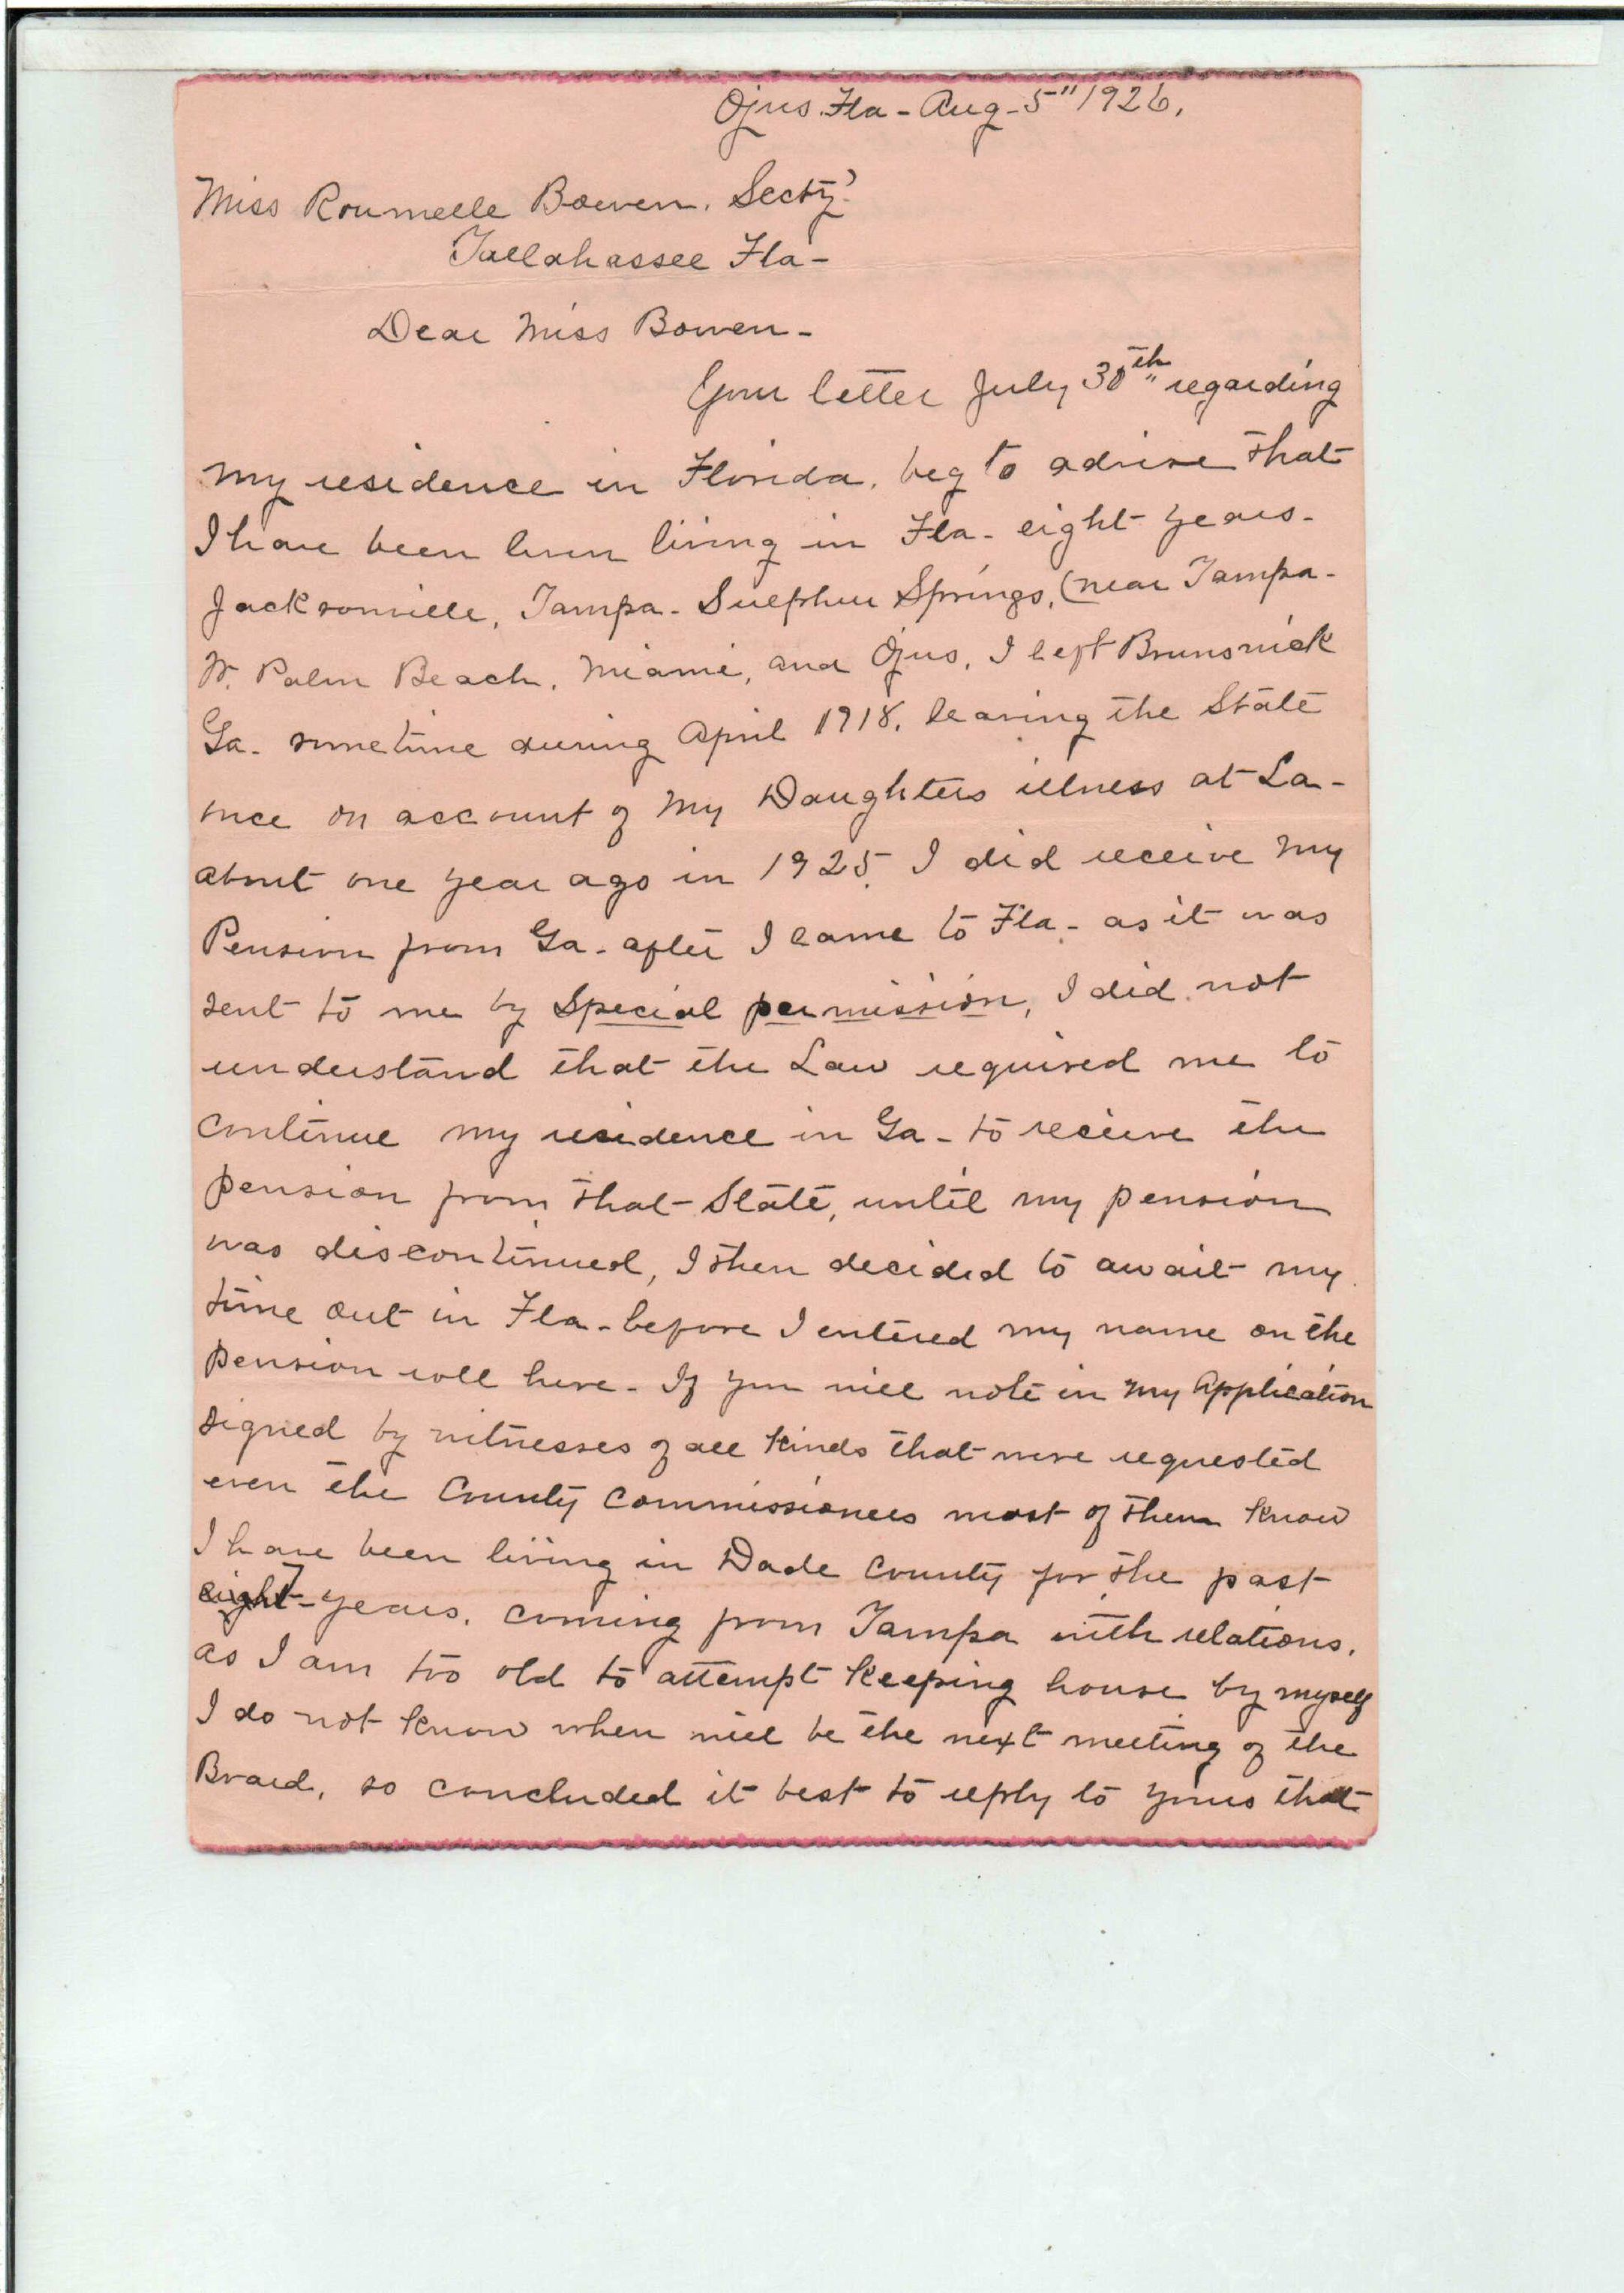 Ojus. Fla - Aug - 5" 1926.
Miss Roumelle Bowen. Secty.
Tallahassee Fla -
Dear Miss Bowen -
Your letter July 30th " regarding
my residence in Florida, beg to advise that
I have been living in Fla - eight years.
Jacksonville, Tampa - Sulphur Springs, (near Tampa -
W. Palm Beach, Miami, and Ojus, I left Brunswick
Ga - sometime during April 1918, leaving the State
once on account of my Daughters illness at La -
about one year ago in 1925. I did receive my
Pension from Ga - after I came to Fla - as it was
sent to me by Special permission, I did not
understand that the Law required me to
continue my residence in Ga - to receive the
pension from that State, until my pension
was discontinued, I then decided to await my
time out in Fla - before I entered my name on the
pension roll here - If you will note in my Application
signed by witnesses of all kinds that were requested
even the County Commissioners most of them know
I have been living in Dade County for the past
eight - years, coming from Tampa with relations,
as I am too old to attempt keeping house by myself
I do not know when will be the next meeting of the
Board, so concluded it best to reply to yours that